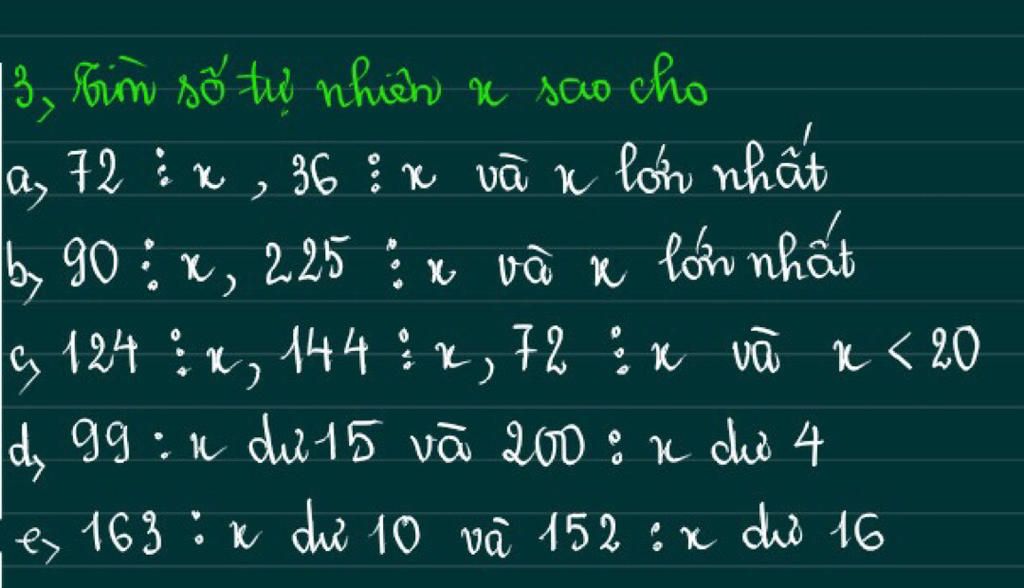 3, Tìm số tự nhiên x sao cho
a, 72 ⋮ x , 36 ⋮ x và x lớn nhất
b, 90 ⋮ x, 225 ⋮ x và x lớn nhất
c, 124 ⋮ x, 144 ⋮ x, 72 ⋮ x và x < 20
d, 99 : x dư 15 và 200 : x dư 4
e, 163 : x dư 10 và 152 : x dư 16